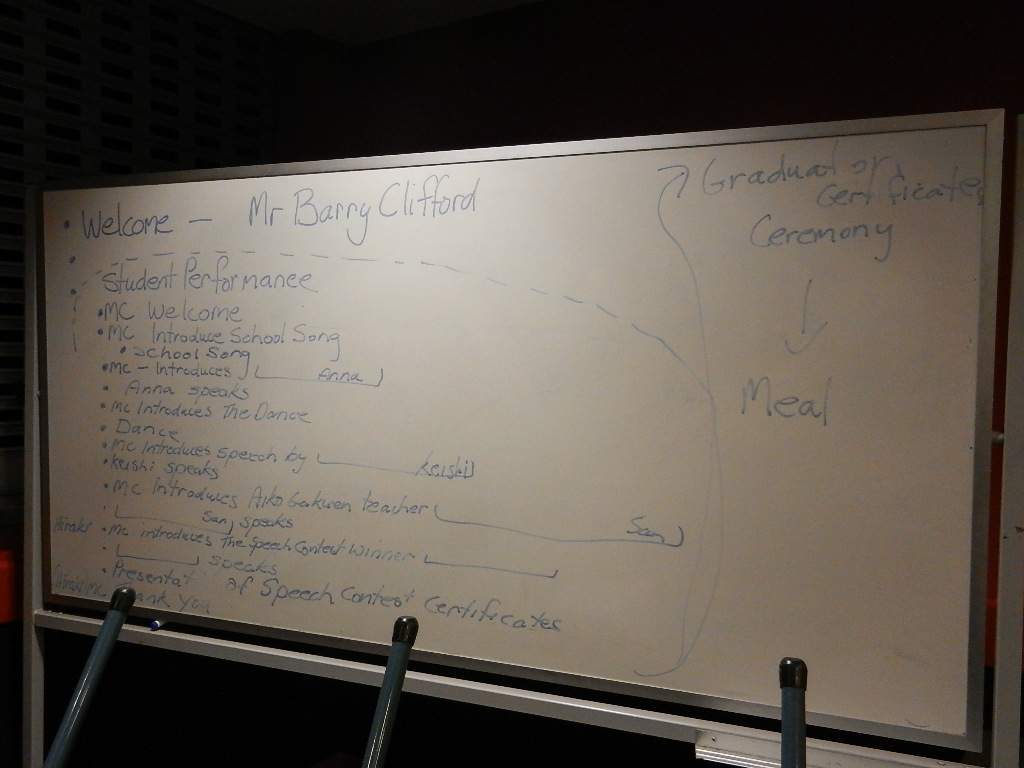 • Welcome — Mr Barry Clifford
Student Performance
• MC Welcome
• MC Introduce School Song
• School Song
• MC - Introduces Anna
• Anna speaks
• MC Introduces The Dance
• Dance
• MC Introduces speech by Keishi
• Keishi speaks
• MC Introduces Aiko Gakuen teacher San
San speaks
• MC introduces The Speech Contest Winner
speaks
• Presentat of Speech Contest Certificates
Thank You
Graduation
Certificates
Ceremony
Meal